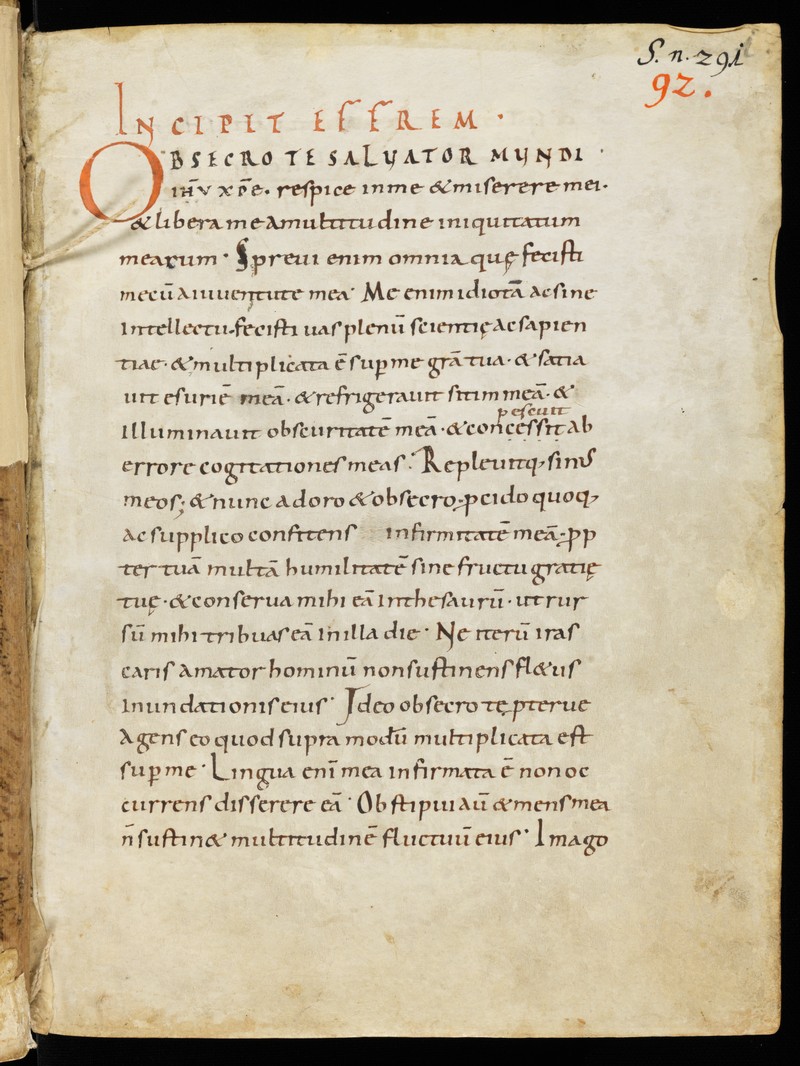 S. n. 291
92.
INCIPIT EFFREM ·
OBSECRO TE SALVATOR MUNDI ·
ihū xp̄e. respice inme &miserere mei·
&libera meamultitudine iniquitatum
mearum · Spreui enim omnia quę fecisti
mecū aiuuentute mea · Me enim idiotā acsine
intellectu·fecisti uas plenū scientię Acsapien
tiae·&multiplicata ē sup me grā tua·&satia
uit esuriē meā·&refrigerauit sitim meā·&
pescuit
illuminauit obscuritatē meā·&concessit ab
errore cogitationes meas · Repleuitq, sinus
meos; &nunc adoro &obsecro·pcido quoq,
ac supplico confitens infirmitatē meā·pp
ter tuā multā humilitatē sine fructu gratię
tuę·&conserua mihi eā inthesaurū·ut rur
sū mihi tribuas eā in illa die · Ne iterū iras
caris Amator hominū non sustinens fl&us
inundationis eius · Ideo obsecro te pterue
Agens eo quod supra modū multiplicata est
sup me · Lingua enī mea infirmata ē non oc
currens disserere eā · Obstipui aū &mens mea
n̄ sustin& multitudinē fluctuū eius · Imago